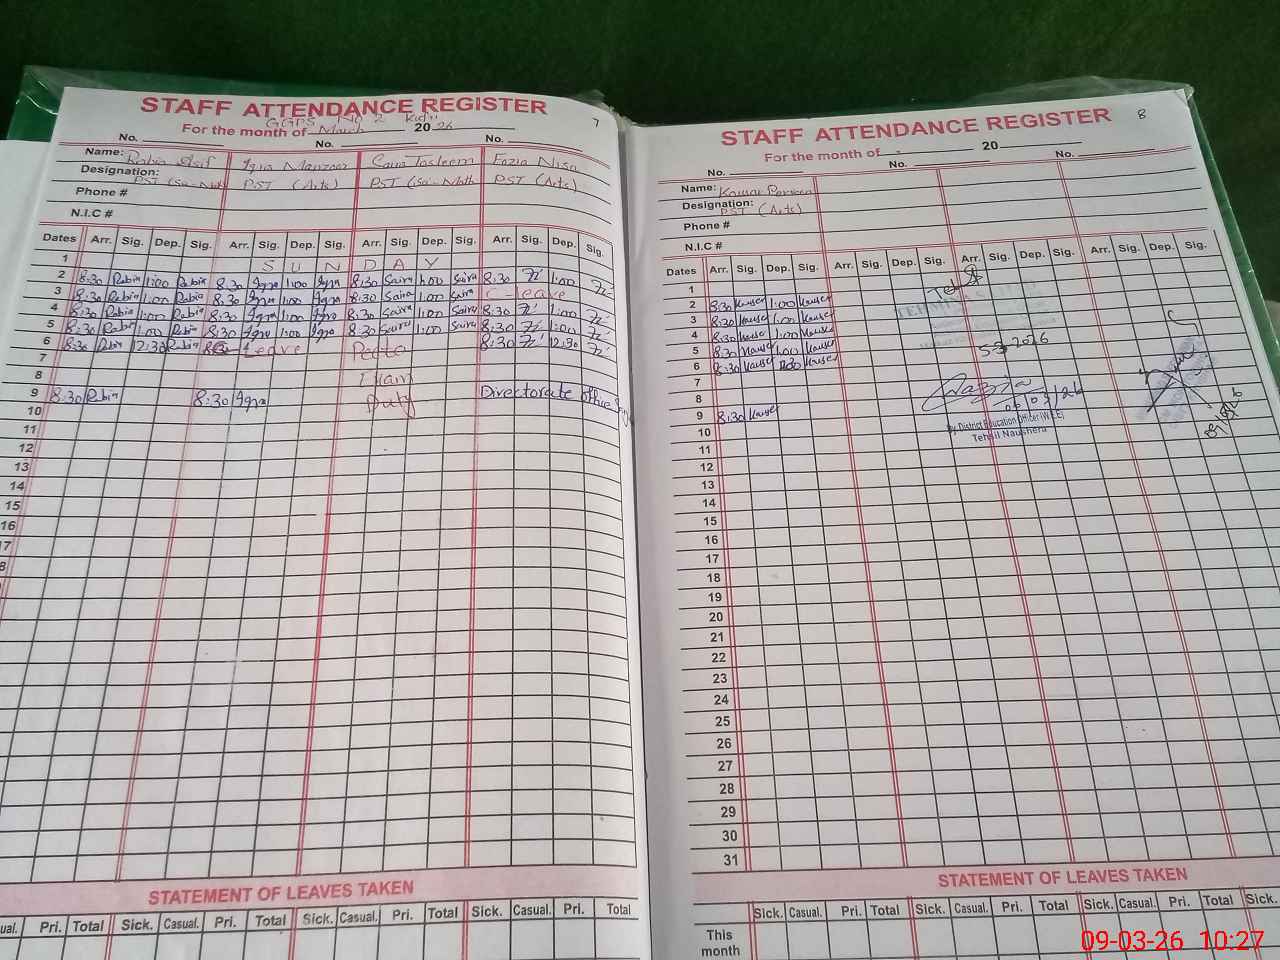 STAFF ATTENDANCE REGISTER 7
GGPS No 2
For the month of March 2026
No. No. No.
Name: Rabia Asif Iqra Manzoor Saira Tasleem Fozia Nisa
Designation: PST (Sci-Math PST (Arts) PST (Sci-Math PST (Arts)
Phone #
N.I.C #
Dates Arr. Sig. Dep. Sig. Arr. Sig. Dep. Sig. Arr. Sig. Dep. Sig. Arr. Sig. Dep. Sig.
1 S U N D A Y
2 8:30 Rabia 1:00 Rabia 8:30 Iqra 1:00 Iqra 8:30 Saira 1:00 Saira 8:30 1:00
3 8:30 Rabia 1:00 Rabia 8:30 Iqra 1:00 Iqra 8:30 Saira 1:00 Saira C-Leave
4 8:30 Rabia 1:00 Rabia 8:30 Iqra 1:00 Iqra 8:30 Saira 1:00 Saira 8:30 1:00
5 8:30 Rabia 1:00 Rabia 8:30 Iqra 1:00 Iqra 8:30 Saira 1:00 Saira 8:30 1:00
6 8:30 Rabia 12:30 Rabia Leave 8:30 12:30
7
8 Exam
9 8:30 Rabia 8:30 Iqra Duty Directorate office
10
11
12
13
14
15
16
17
18
STATEMENT OF LEAVES TAKEN
ual. Pri. Total Sick. Casual. Pri. Total Sick. Casual. Pri. Total Sick. Casual. Pri. Total
STAFF ATTENDANCE REGISTER 8
For the month of 20
No. No. No.
Name: Kousar Parveen
Designation: PST (Arts)
Phone #
N.I.C #
Dates Arr. Sig. Dep. Sig. Arr. Sig. Dep. Sig. Arr. Sig. Dep. Sig. Arr. Sig. Dep. Sig.
1
2 8:30 Kauser 1:00 Kauser
3 8:30 Kauser 1:00 Kauser
4 8:30 Kauser 1:00 Kauser
5 8:30 Kauser 1:00 Kauser 5-3-2026
6 8:30 Kauser 12:30 Kauser
7
8 06/03/26
9 8:30 Kauser Dy District Education Officer (W-EE) 09/03/26
10 Tehsil Naushera
11
12
13
14
15
16
17
18
19
20
21
22
23
24
25
26
27
28
29
30
31
STATEMENT OF LEAVES TAKEN
Sick. Casual. Pri. Total Sick. Casual. Pri. Total Sick. Casual. Pri. Total Sick.
This month
09-03-26 10:27